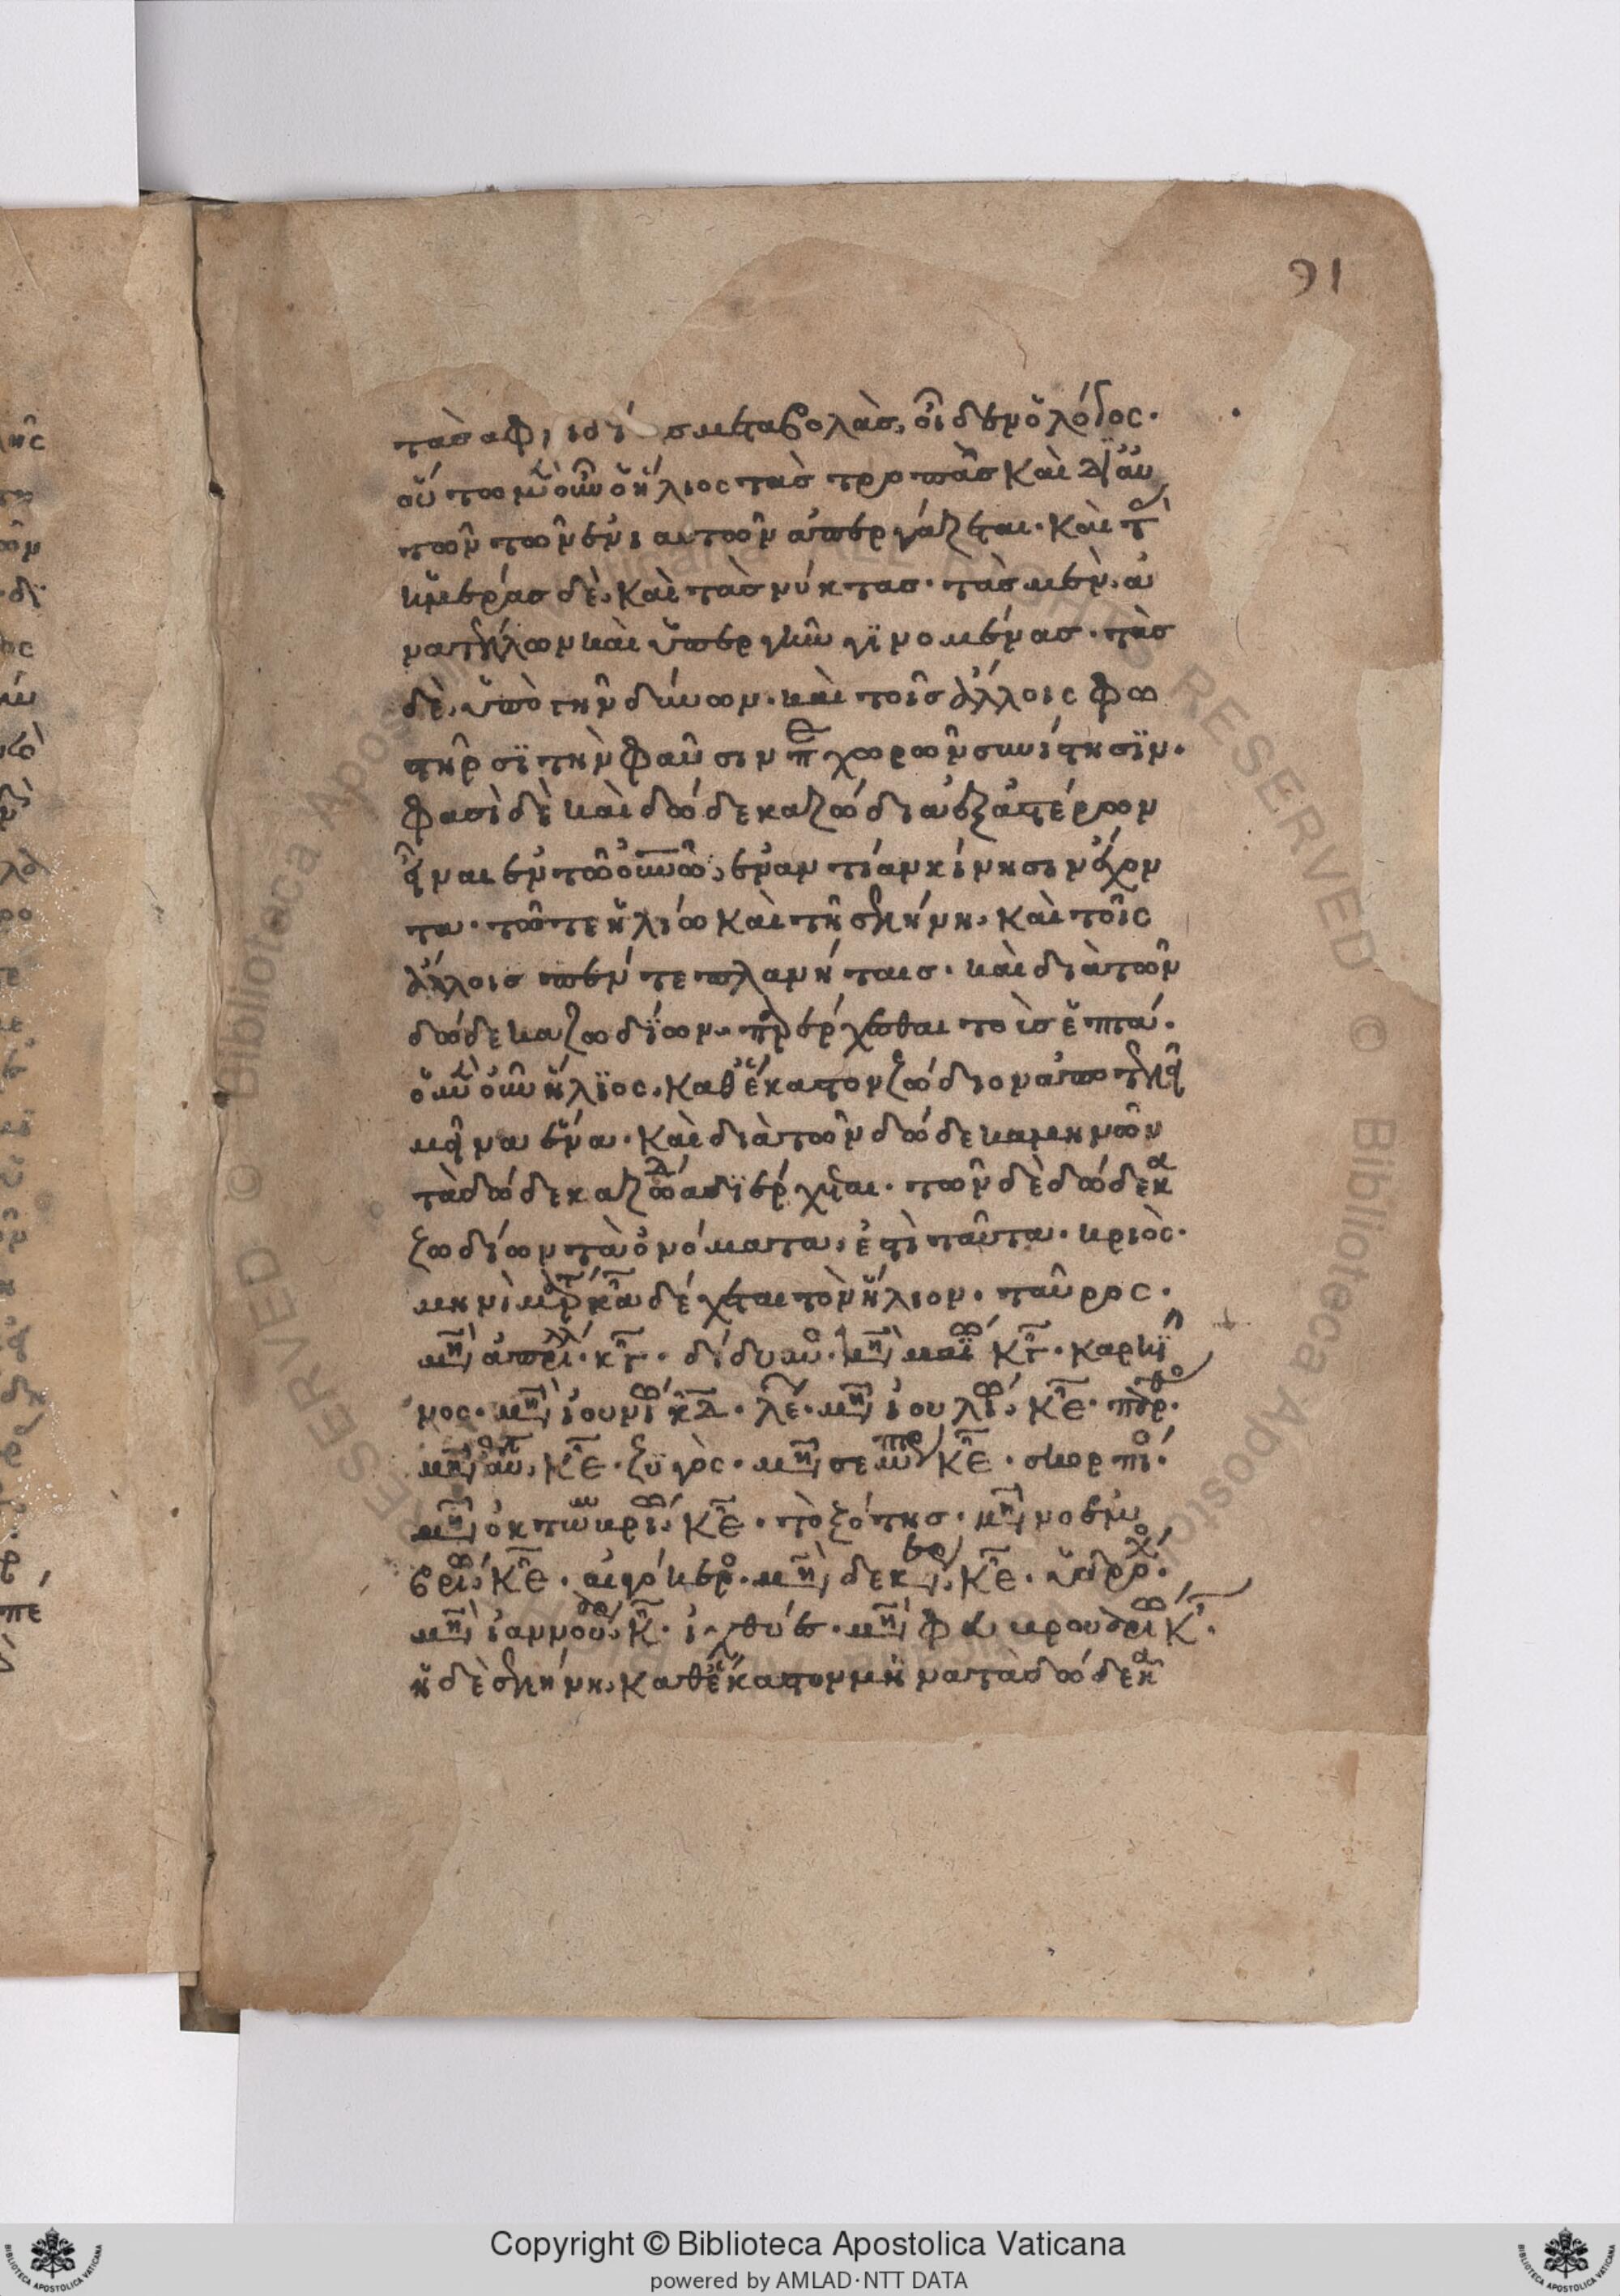 91
τὰς αἰφνιδίους μεταβολὰς, οἶδεν ὁ λόγος·
οὕτω μὲν οὖν ὁ ἥλιος τὰς τροπὰς καὶ δι' αὐ
τῶν τὸν ἐνιαυτὸν ἀπεργάζεται· καὶ τὰς
ἡμέρας δὲ, καὶ τὰς νύκτας· τὰς μὲν, ἀ
νατέλλων καὶ ὑπὲρ γῆν γινομένας· τὰς
δὲ, ὑπὸ γῆν δύνων· καὶ τοῖς ἄλλοις φω
τῆρσι τὴν φαῦσιν παραχωρῶν συνίστησιν·
φασὶ δὲ καὶ δώδεκα ζώδια ἐξ ἀστέρων
εἶναι ἐν τῷ οὐνῷ, ἐναντίαν κίνησιν ἔχον
τα· τῷ τε ἡλίῳ καὶ τῇ σελήνῃ, καὶ τοῖς
ἄλλοις πέντε πλανήταις· καὶ διὰ τῶν
δώδεκα ζωδίων παρέρχεσθαι τοὺς ἑπτά·
ὁ μὲν οὖν ἥλιος, καθ' ἕκαστον ζώδιον ἀποτελεῖ
μῆνα ἕνα· καὶ διὰ τῶν δώδεκα μηνῶν
τὰ δώδεκα ζώδια διέρχεται· τῶν δὲ δώδεκα
ζωδίων τὰ ὀνόματα, ἐστὶ ταῦτα· κριὸς·
μηνὶ μαρτ κα δέχεται τὸν ἥλιον· ταῦρος·
μηνὶ ἀπριλλ· κγ· δίδυμοι· μηνὶ μαΐω κγ· καρκῖ
νος· μηνὶ ἰουνίω κδ· λέων· μηνὶ ἰουλίω, κε· παρθένος·
μηνὶ αὐγ, κε· ζυγὸς· μηνὶ σεπτεμβρ κε· σκορπίος·
μηνὶ ὀκτωμβρίω, κε· τοξότης· μηνὶ νοεμ
βρίω, κε· αἰγόκερος· μηνὶ δεκεμβρ, κε· ὑδροχόος·
μηνὶ ἰαννουαρ, κ· ἰχθύες· μηνὶ φευρουαρίω κ·
ἡ δὲ σελήνη, καθ' ἕκαστον μῆνα τὰ δώδεκα
Copyright © Biblioteca Apostolica Vaticana
powered by AMLAD·NTT DATA